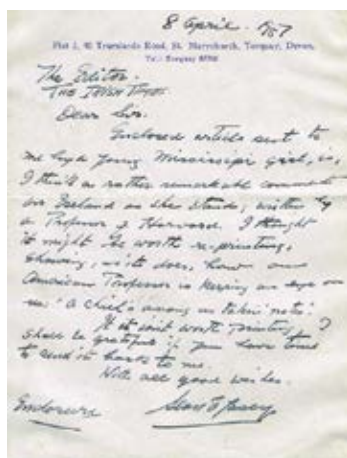 8 April. 1957
Flat 3, 40 Trumlands Road, St. Marychurch, Torquay, Devon.
Tel: Torquay
The Editor.
THE IRISH TIMES
Dear Sir.
Enclosed article sent to
me by a young Mississippi girl, is,
I think a rather remarkable comment
on Ireland as she stands, written by
a Professor of Harvard. I thought
it might be worth re-printing,
showing, as it does, how an
American Professor is keeping an eye on
us: 'A chiel's among us takin' notes'.
If it isn't worth printing, I
shall be grateful if you have time
to send it back to me.
With all good wishes.
Enclosure Sean O'Casey